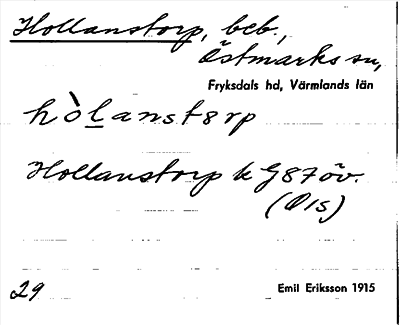 Hollanstorp, beb.,
Östmarks sn,
Fryksdals hd, Värmlands län
hòlanstorp
Hollanstorp k G87öv.
(Ols)
29 Emil Eriksson 1915